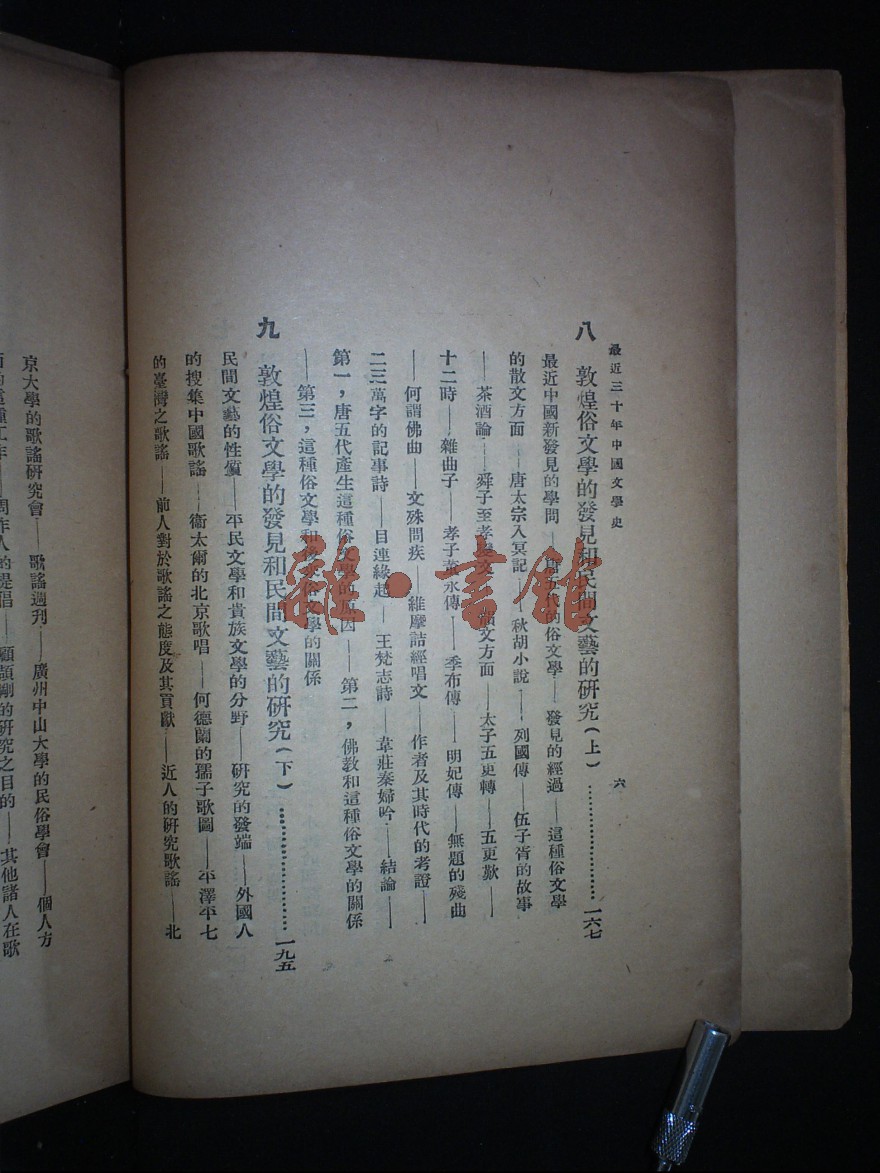 最近三十年中國文學史
六
八 敦煌俗文學的發見和民間文藝的研究（上）……………………一六七
最近中國新發見的學問——唐五代的俗文學——發見的經過——這種俗文學
的散文方面——唐太宗入冥記——秋胡小說——列國傳——伍子胥的故事
——茶酒論——舜子至孝變文——韻文方面——太子五更轉——五更歎——
十二時——雜曲子——孝子董永傳——季布傳——明妃傳——無題的殘曲
——何謂佛曲——文殊問疾——維摩詰經唱文——作者及其時代的考證——
二三萬字的記事詩——目連緣起——王梵志詩——韋莊秦婦吟——結論——
第一，唐五代產生這種俗文學的原因——第二，佛教和這種俗文學的關係
——第三，這種俗文學和後來俗文學的關係
九 敦煌俗文學的發見和民間文藝的研究（下）……………………一九五
民間文藝的性質——平民文學和貴族文學的分野——研究的發端——外國人
的搜集中國歌謠——衞太爾的北京歌唱——何德蘭的孺子歌圖——平澤平七
的臺灣之歌謠——前人對於歌謠之態度及其貢獻——近人的研究歌謠——北
京大學的歌謠研究會——歌謠週刊——廣州中山大學的民俗學會——個人方
面的這種工作——周作人的提倡——顧頡剛的研究之目的——其他諸人在歌
雜·書館